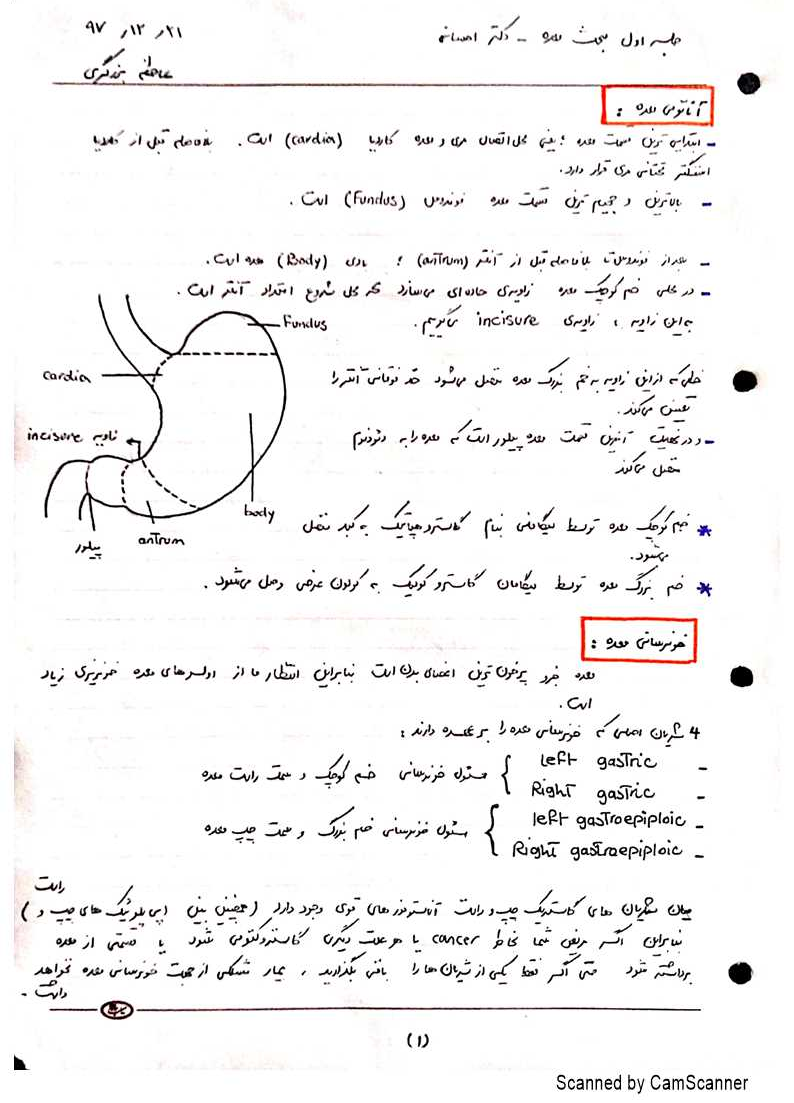 جلسه اول مبحث معده - دکتر
۹۷ ,۱۲ ,۲۱
آناتومی معده :
- ابتدایی ترین قسمت معده ؛ یعنی محل اتصال مری و معده کاردیا (cardia) است. بلافاصله قبل از کاردیا
اسفنکتر تحتانی مری قرار دارد.
- بالاترین و حجیم ترین قسمت معده فوندوس (Fundus) است.
- بعد از فوندوس تا بلافاصله قبل از آنتر (anTrum) ؛ بادی (Body) معده است.
- در محلی خم کوچک معده زاویه‌ی حاده‌ای می‌سازد که محل شروع امتداد آنتر است.
به این زاویه ، زاویه‌ی incisure می‌گوییم.
خطی که از این زاویه به خم بزرگ معده متصل می‌شود حد فوقانی آنتر را
تعیین می‌کند.
- و در نهایت آخرین قسمت معده پیلور است که معده را به دئودنوم
متصل می‌کند
Fundus
cardia
زاویه incisure
body
anTrum
پیلور
* خم کوچک معده توسط لیگامانی بنام گاستروهپاتیک به کبد متصل
می‌شود.
* خم بزرگ معده توسط لیگامان گاستروکولیک به کولون عرضی وصل می‌شود.
خونرسانی معده :
معده جزو پرخون ترین اعضای بدن است بنابراین انتظار ما از اولسرهای معده خونریزی زیاد
است.
۴ شریان اصلی که خونرسانی معده را بر عهده دارند :
- Left gasTric
- Right gasTric
} مسئول خونرسانی خم کوچک و سمت راست معده
- left gastroepiploic
- Right gastroepiploic
} مسئول خونرسانی خم بزرگ و سمت چپ معده
میان شریان های گاستریک چپ و راست آناستوموزهای قوی وجود دارد (همچنین بین اپی پلوئیک های چپ و راست)
بنابراین اگر مریض شما بخاطر cancer یا هر علت دیگری گاسترکتومی شود یا قسمتی از معده
برداشته شود حتی اگر فقط یکی از شریان ها را باقی بگذارید ، بیمار مشکلی از جهت خونرسانی معده نخواهد
داشت.
(۱)
Scanned by CamScanner